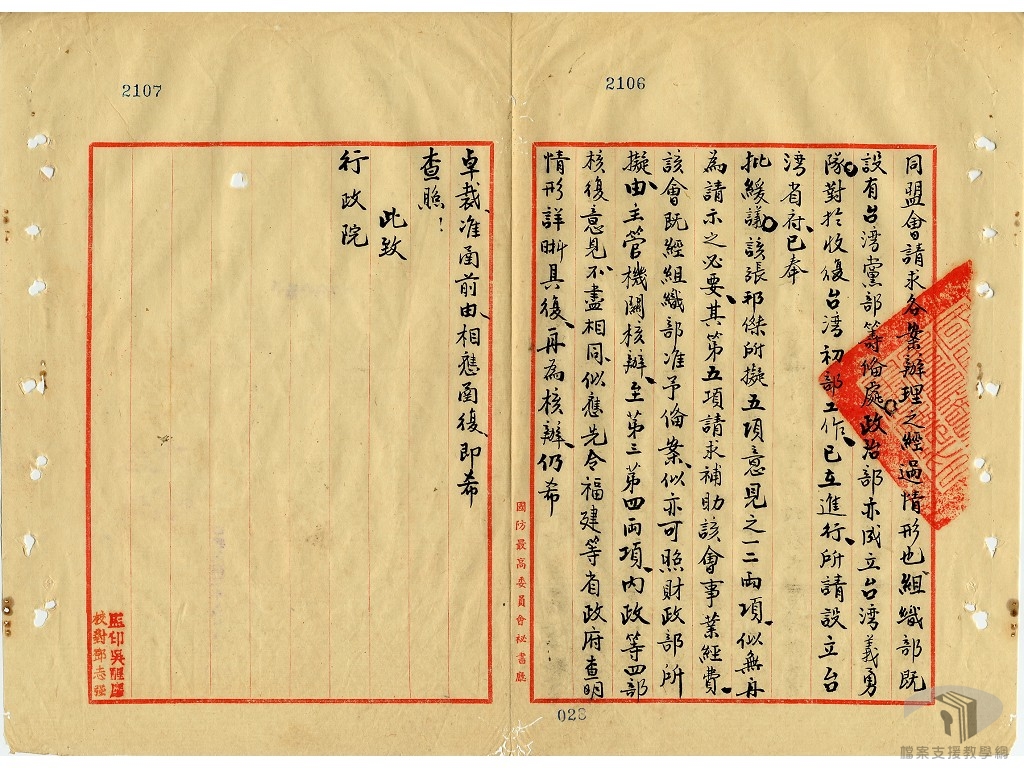 2106
同盟會請求各案辦理之經過情形也組織部既
設有台湾黨部籌備處政治部亦成立台湾義勇
隊對於收復台湾初部工作已在進行所請設立台
湾省府已奉
批緩議該張邦傑所擬五項意見之一二兩項似無再
為請示之必要其第五項請求補助該會事業經費
該會既經組織部准予備案似亦可照財政部所
擬由主管機關核辦至第三第四兩項內政等四部
核復意見不盡相同似應先令福建等省政府查明
情形詳晰具復再為核辦仍希
國防最高委員會秘書廳
028
2107
卓裁准函前由相應函復即希
查照！
此致
行政院
監印吳醒
校對鄧志強
檔案支援教學網